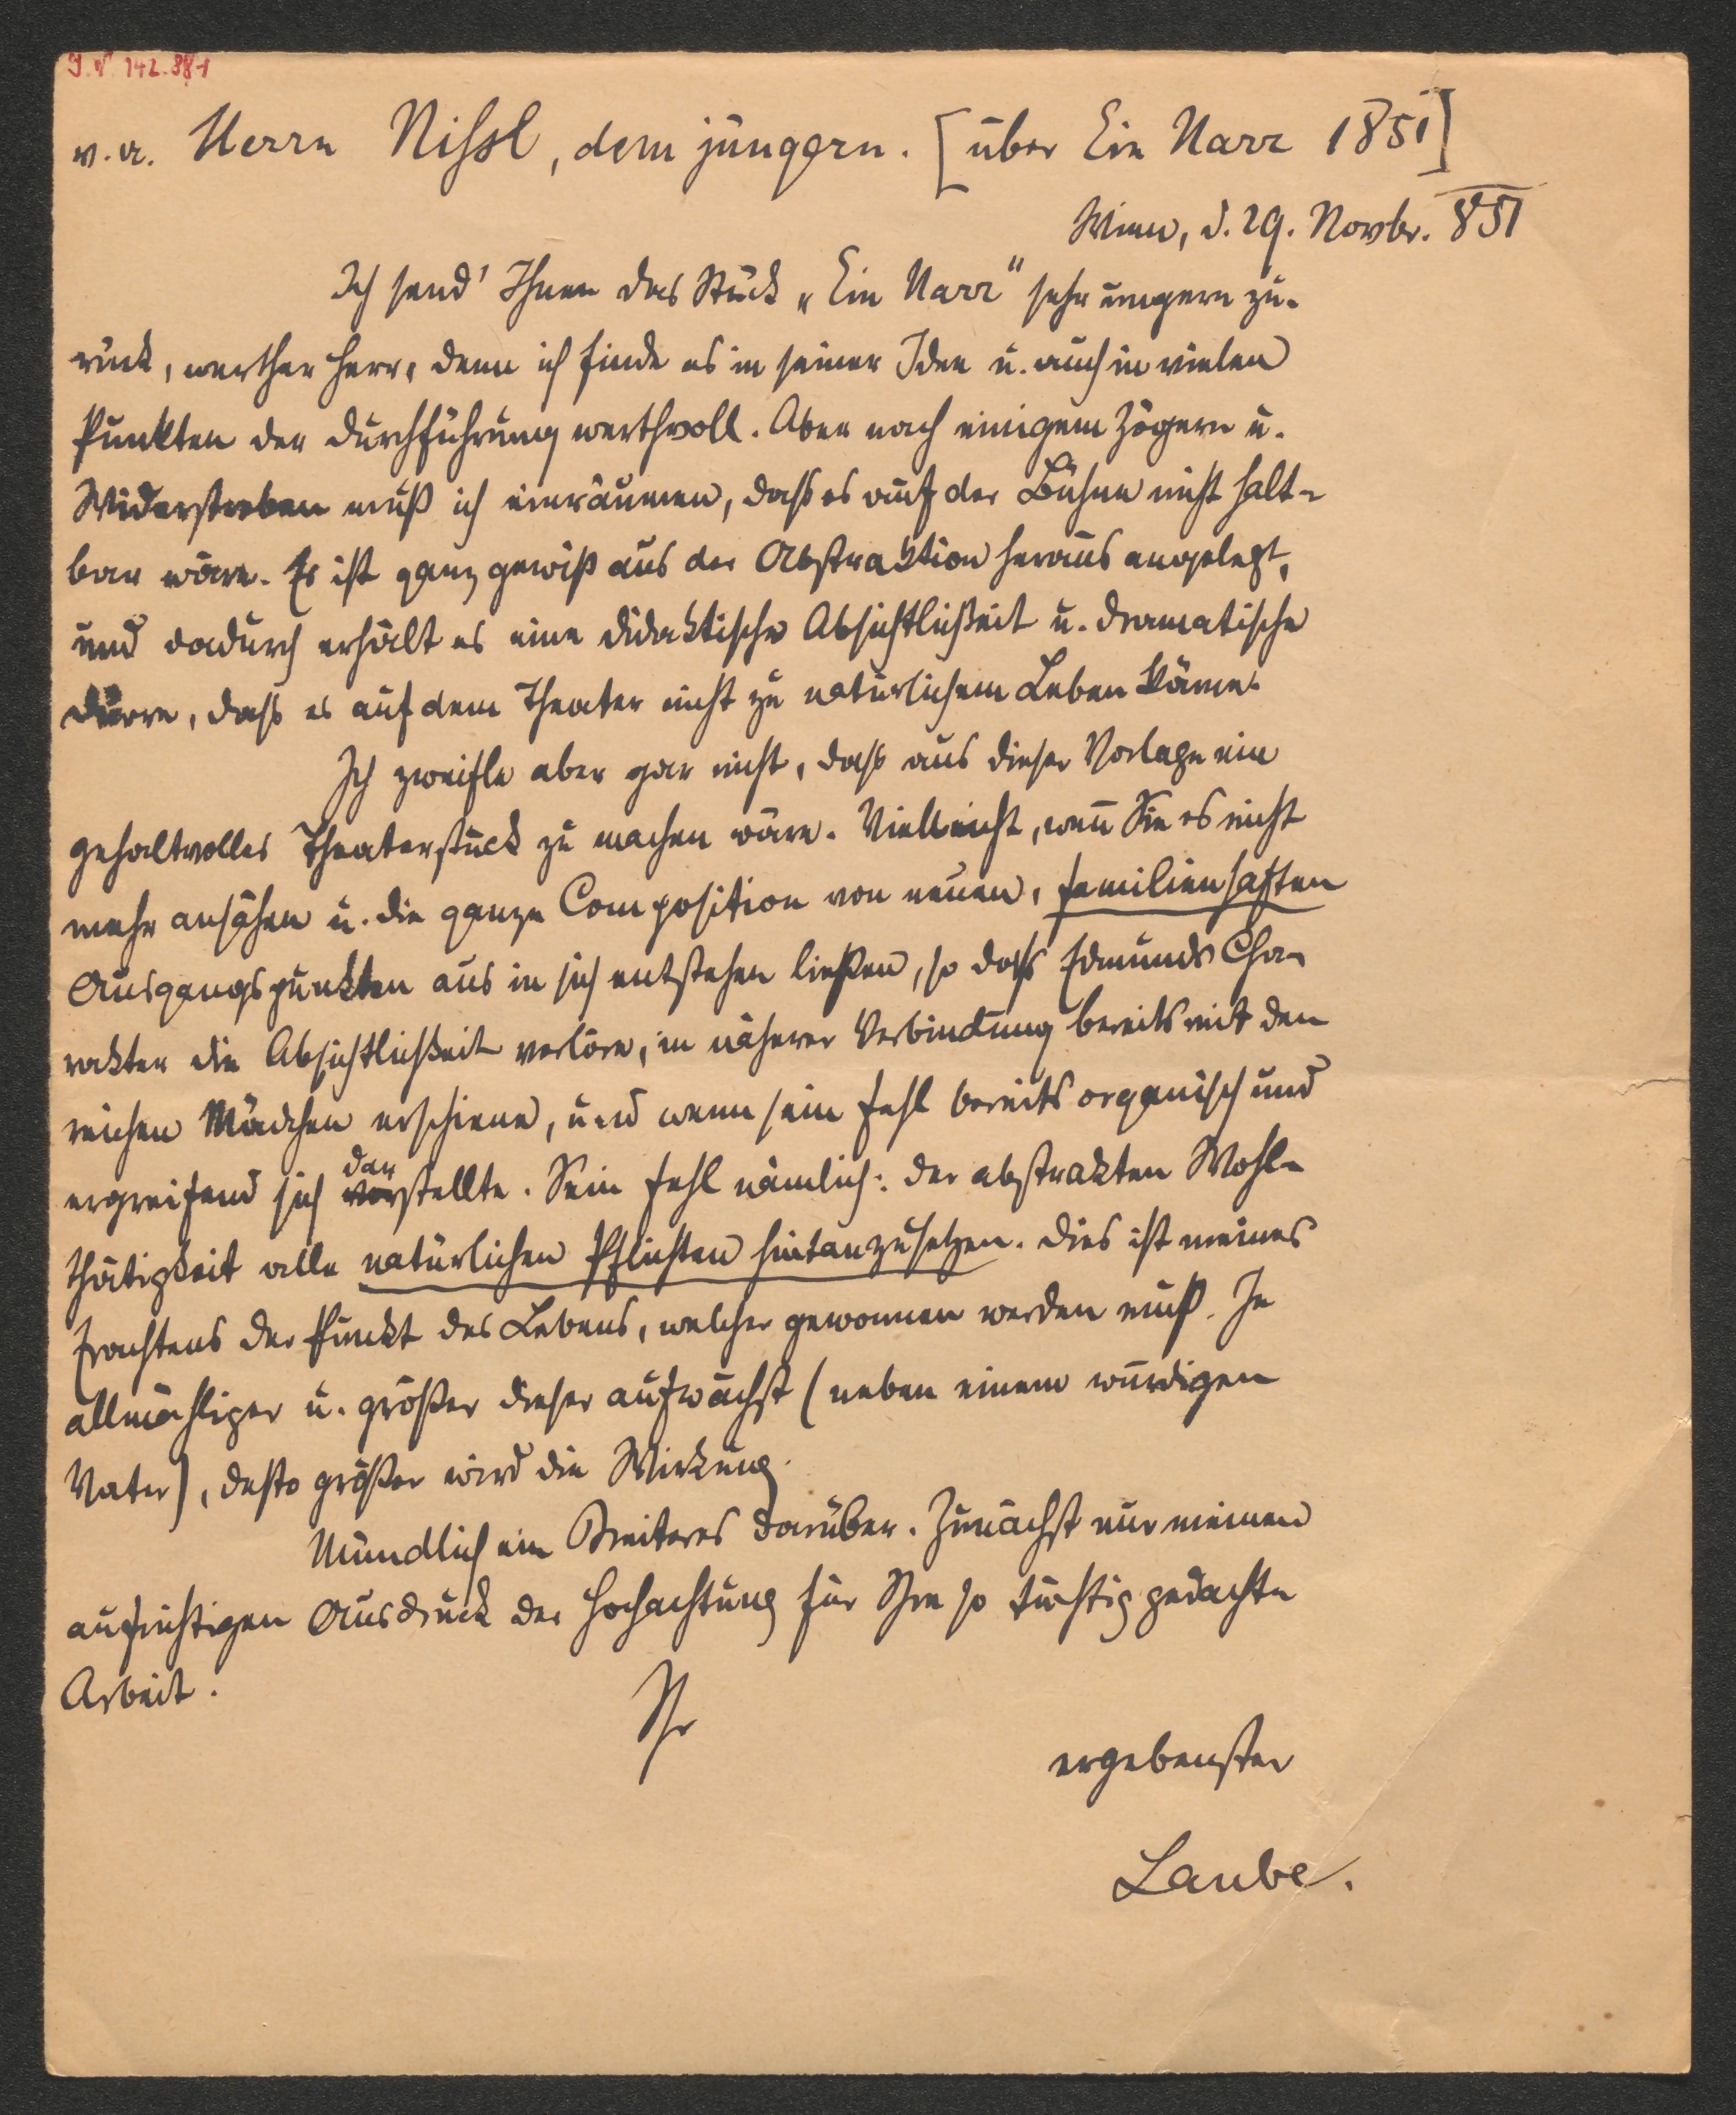 I.N. 142.881
v. a. Herrn Nissl, dem jüngern. [über Ein Narr 1851]
Wien, d. 29. Novbr. 851
Ich send' Ihnen das Stück „Ein Narr“ sehr ungern zu-
rück, werther Herr, denn ich finde es in seiner Idee u. auch in vielen
Punkten der Durchführung werthvoll. Aber nach einigem Zögern u.
Widerstreben muß ich einräumen, daß es auf der Bühne nicht halt-
bar wäre. Es ist ganz gewiß aus der Abstraktion heraus angelegt,
und dadurch erhält es eine didaktische Absichtlichkeit u. dramatische
Dürre, daß es auf dem Theater nicht zu natürlichem Leben käme.
Ich zweifle aber gar nicht, daß aus dieser Vorlage ein
gehaltvolles Theaterstück zu machen wäre. Vielleicht, wenn Sie es nicht
mehr ansähen u. die ganze Composition von neuen, familienhaften
Ausgangspunkten aus in sich entstehen ließen, so daß Edmunds Cha-
rakter die Absichtlichkeit verlöre, in näherer Verbindung bereits mit den
reichen Mädchen erschiene, und wenn sein Fehl bereits organisch und
ergreifend sich vorstellte. Sein Fehl nämlich: der abstrakten Wohl-
dar
thätigkeit alle natürlichen Pflichten hintanzusetzen. Dies ist meines
Erachtens der Punkt des Lebens, welcher gewonnen werden muß. Je
allmähliger u. größer dieser aufwächst (neben einem würdigen
Vater), desto größer wird die Wirkung.
Mündlich ein Breiteres darüber. Zunächst nur meinen
aufrichtigen Ausdruck der Hochachtung für Ihre so tüchtig gedachte
Arbeit.
Ihr
ergebenster
Laube.